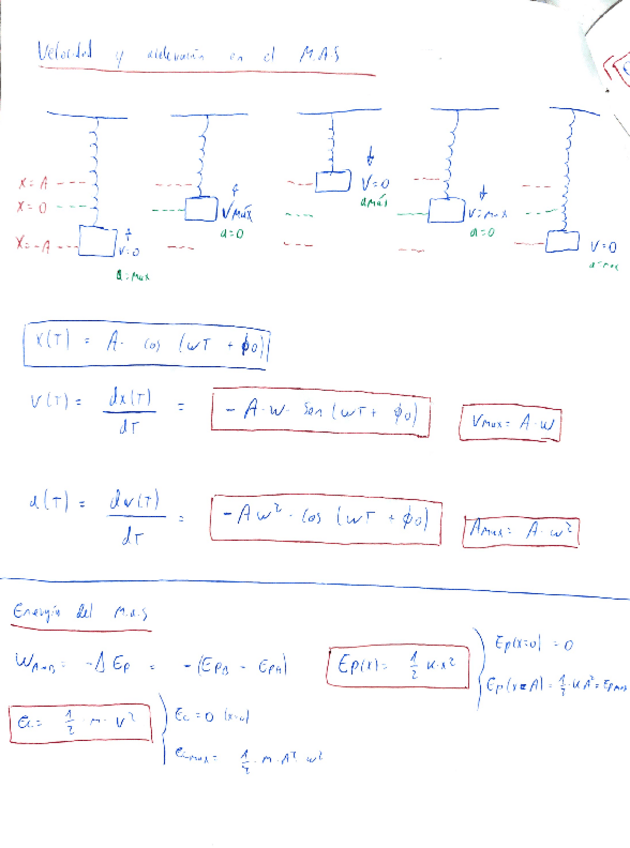 Velocidad y aceleración en el M.A.S
X = A
X = 0
X = -A
V=0
a=max
Vmáx
a=0
V=0
amáx
V=max
a=0
V=0
a=max
x(T) = A· cos (wT + ϕ0)
v(T) = dx(T)/dT = -A·w· sen (wT + ϕ0) Vmax = A·w
a(T) = dv(T)/dT = -Aw²·cos (wT + ϕ0) Amax = A·w²
Energía del M.A.S
WA→B = -ΔEp = -(EpB - EpA) Ep(x) = 1/2 k·x² Ep(x=0) = 0
Ep(x=A) = 1/2·kA² = Epmax
Ec = 1/2 · m · V² Ec = 0
Ecmax = 1/2 · m · A² · w²